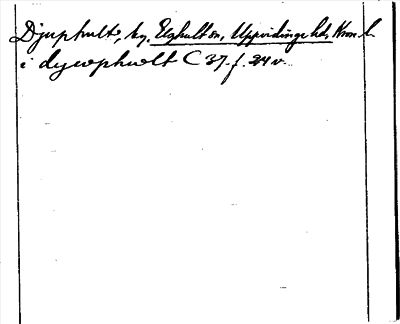 Djuphult, by, Elghult sn, Uppvidinge hd, Kron. l.
i dywphwlt C 37. f. 24 v.